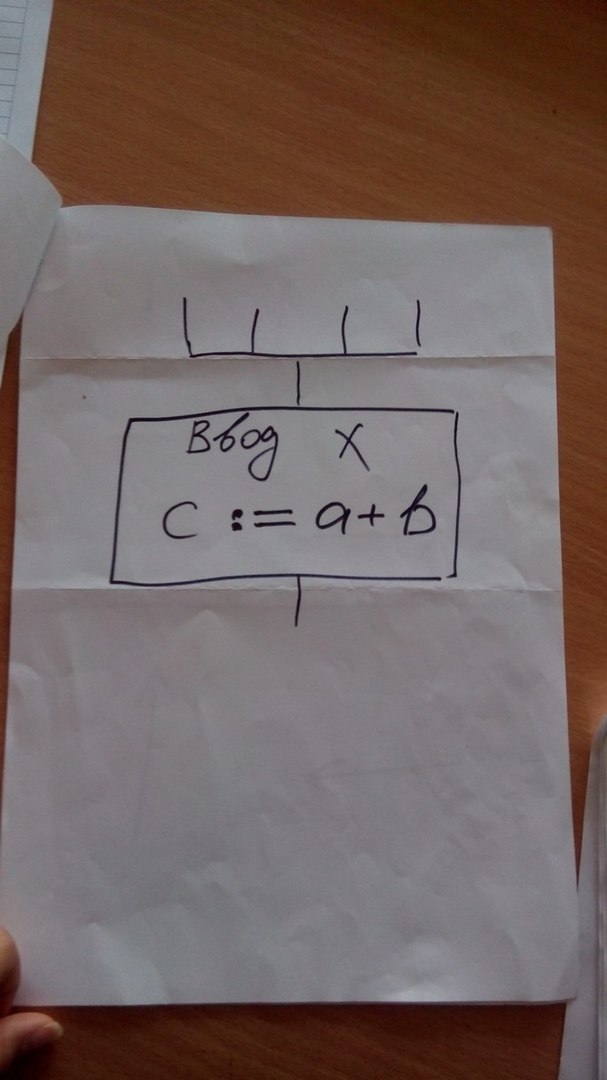 Ввод X
C := a + b